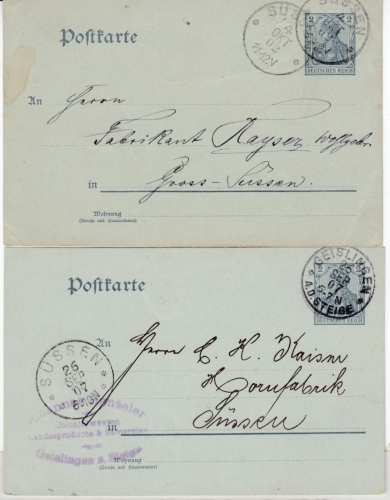 Postkarte
SÜSSEN
OKT
11-12V
SÜSSEN
2 2
DEUTSCHES REICH
An
Herrn
Fabrikant Kayser Wohlgeb.
in Gross-Süssen.
Wohnung
(Straße und Hausnummer)
Postkarte
GEISLINGEN
25
SEP
07
6-7 N
A.D. STEIGE
DEUTSCHES REICH
SÜSSEN
26
SEP
07
8-10V
An
Herrn C. H. Kaiser
Hornfabrik
in Süssen
Geislingen a. Steige
Wohnung
(Straße und Hausnummer)